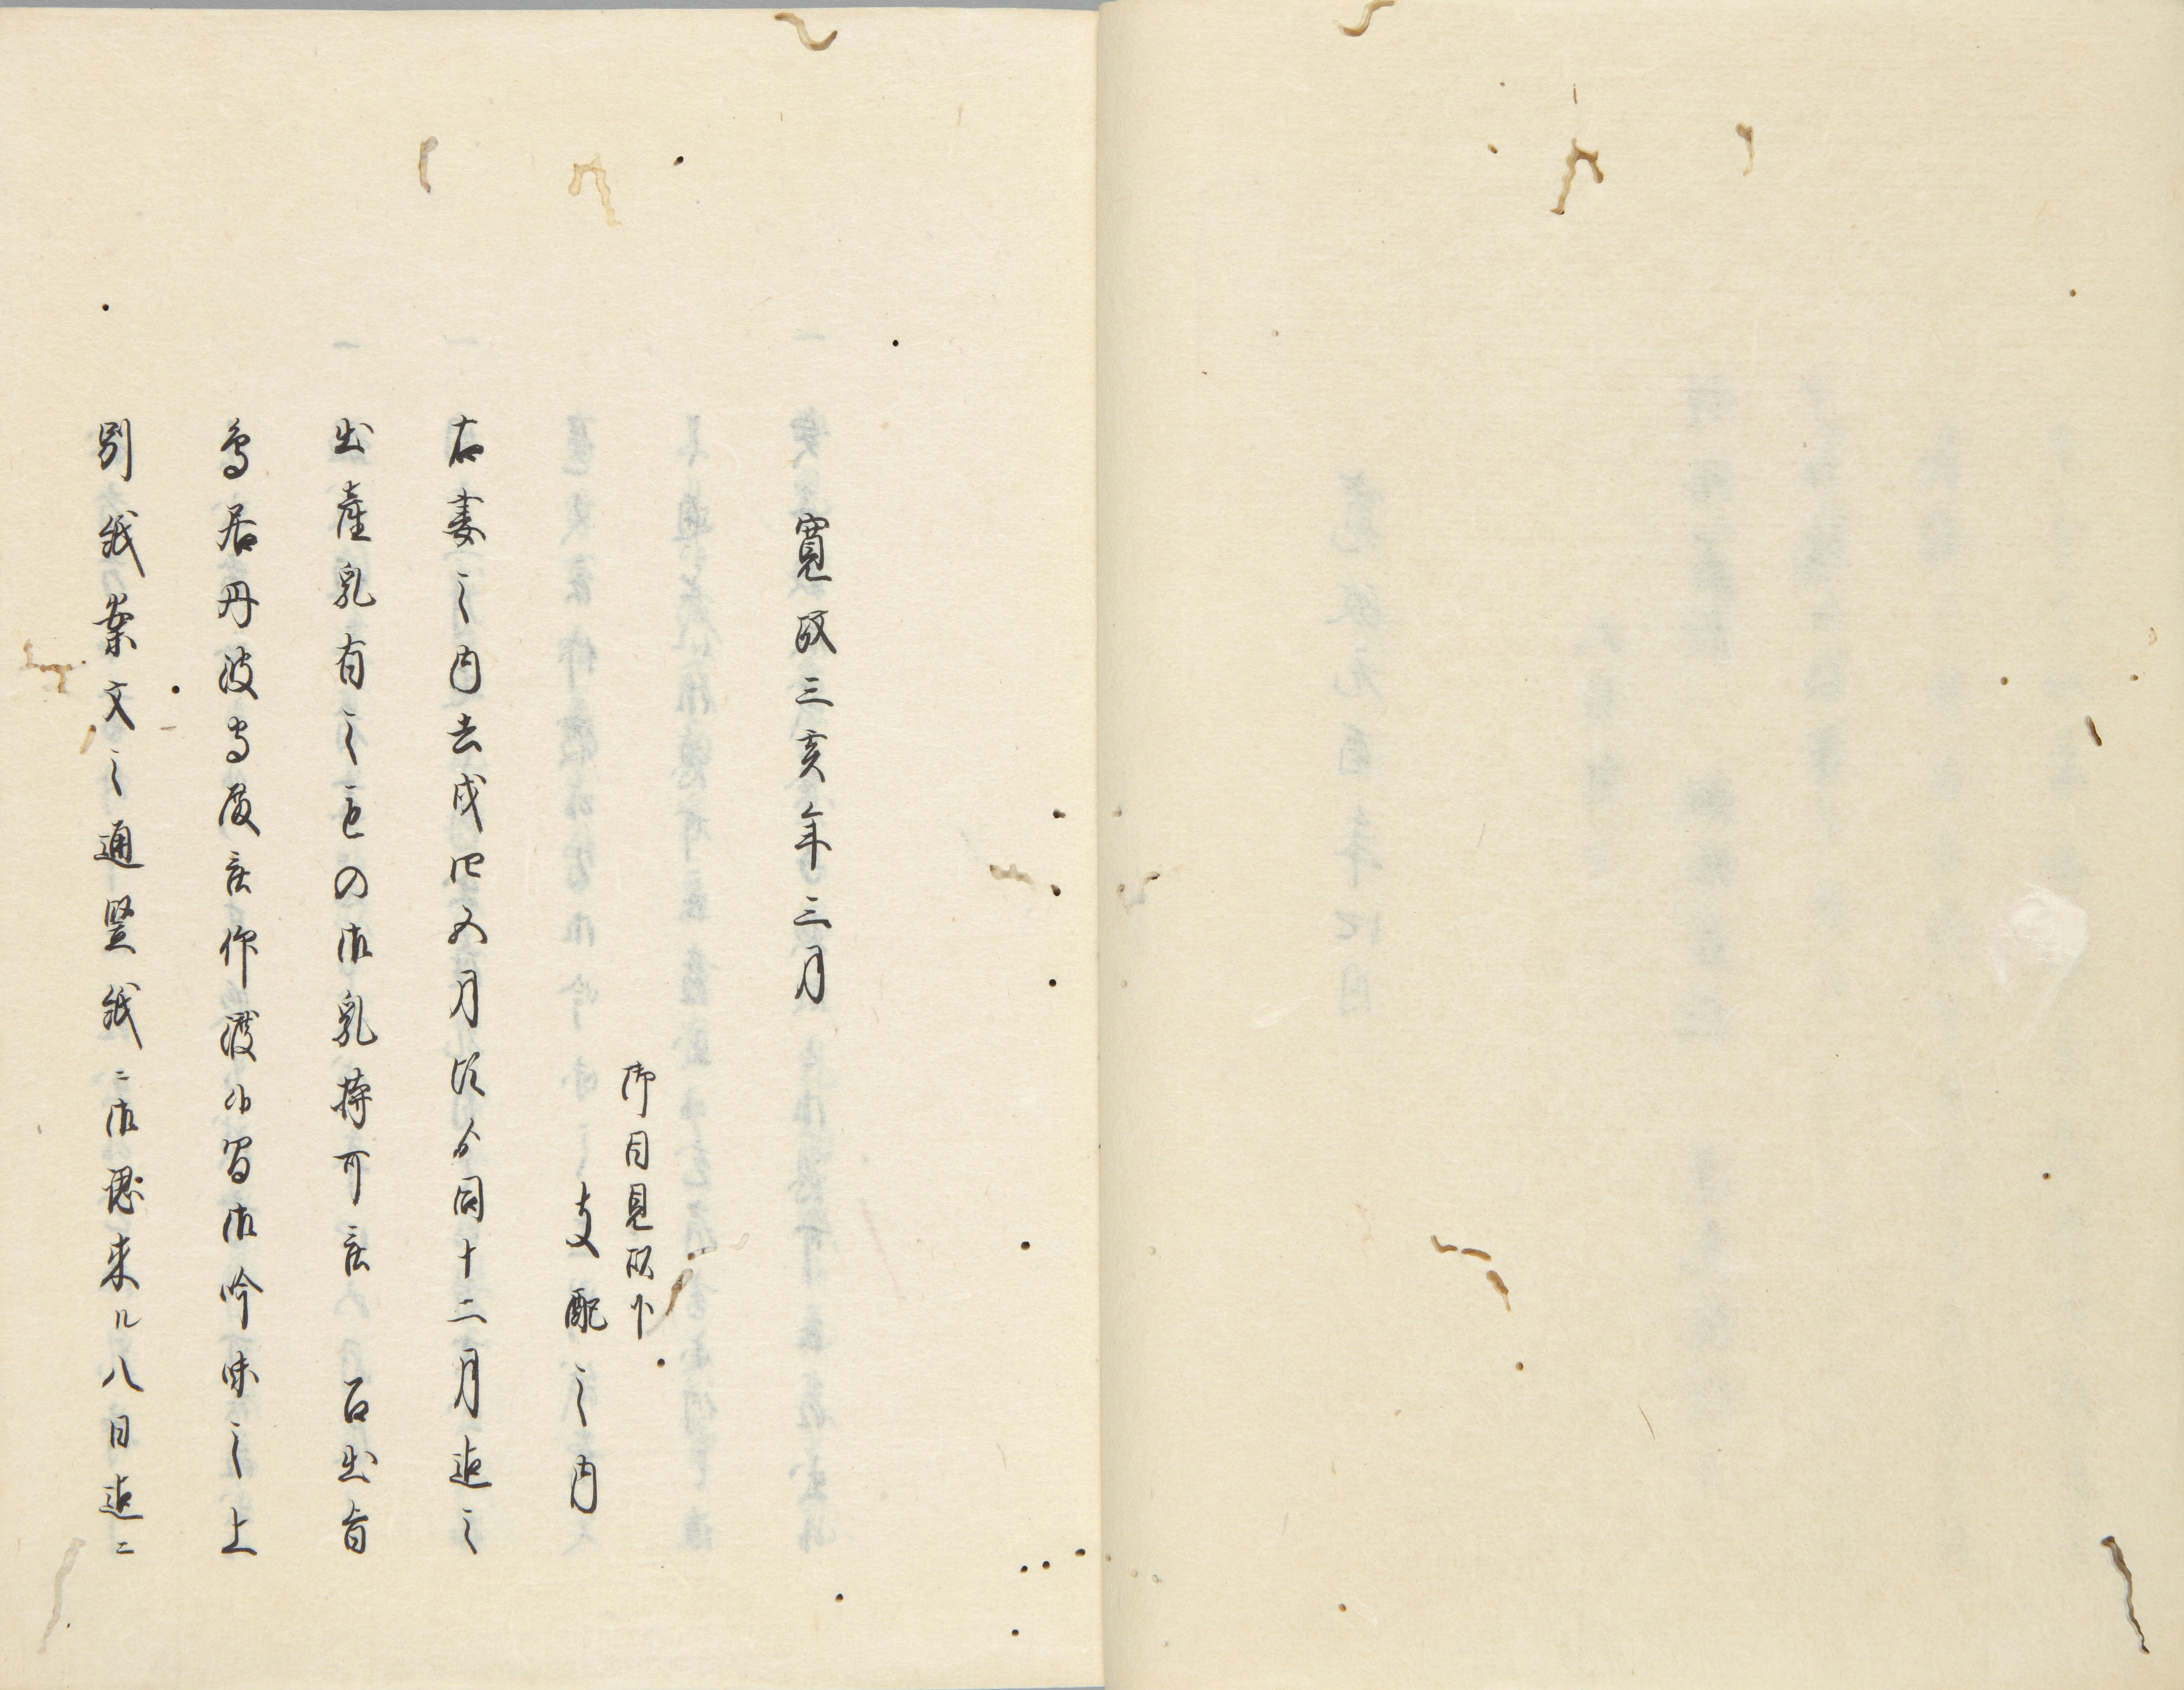 寛政三亥年三月
御目見以下
支配之内
右妻之内去戌四五月頃ゟ同十二月迄之
出産乳有之ものは乳持可 召出旨
鳥居丹波守殿被仰渡候間御吟味之上
別紙案文之通竪紙ニ御認来ル八日迄ニ